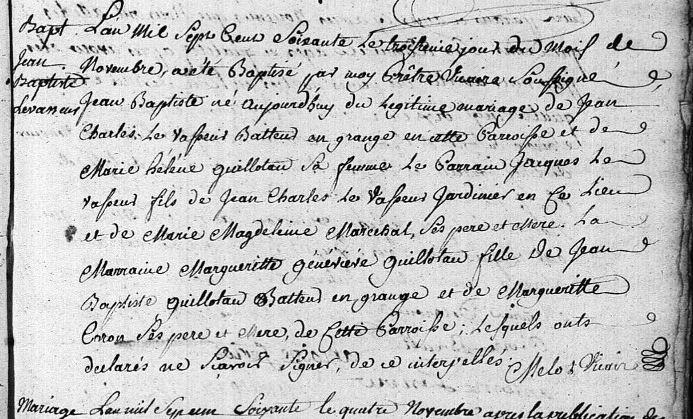 Bapt
Jean
Baptiste
Levasseur
Lan Mil Sept Cent Soixante le troisieme jour du Mois de
Novembre, a été Baptisé par moy Prêtre Vicaire Soussigné
Jean Baptiste né aujourd'huy du legitime mariage de Jean
Charles Le Vasseur Batteur en grange en cette Parroisse et de
Marie helene Guillotau sa femme Le Parrain Jacques Le
Vasseur fils de Jean Charles Le Vasseur Jardinier en Ce Lieu
et de Marie Magdeleine Marechal, Ses pere et Mere. La
Marraine Margueritte Géneviève Guillotau fille de Jean
Baptiste Guillotau Batteur en grange et de Margueritte
Ses pere et Mere, de Cette Parroisse; Lesquels onts
declarés ne Scavoir Signer, de ce interpellés. Melot Vicair
Mariage Lan mil Sept Cent Soixante le quatre Novembre apres la publication de